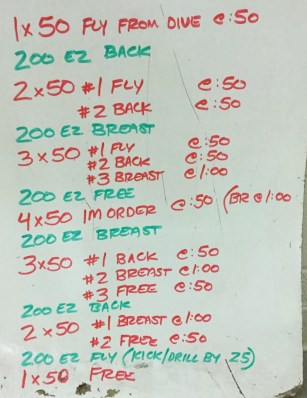 1x50 FLY FROM DIVE @:50
200 EZ BACK
2x50 #1 FLY @:50
#2 BACK @:50
200 EZ BREAST
3x50 #1 FLY @:50
#2 BACK @:50
#3 BREAST @1:00
200 EZ FREE
4x50 IM ORDER @:50 (BR@1:00
200 EZ BREAST
3x50 #1 BACK @:50
#2 BREAST @1:00
#3 FREE @:50
200 EZ BACK
2x50 #1 BREAST @1:00
#2 FREE @:50
200 EZ FLY (KICK/DRILL BY 25)
1x50 FREE